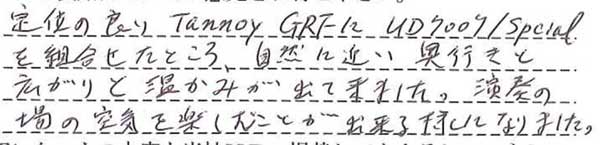 定位の良い Tannoy GRFに UD7007/Special
を組合せたところ、自然に近い奥行きと
広がりと温かみが出て来ました。演奏の
場の空気を楽しむことが出来る様になりました。